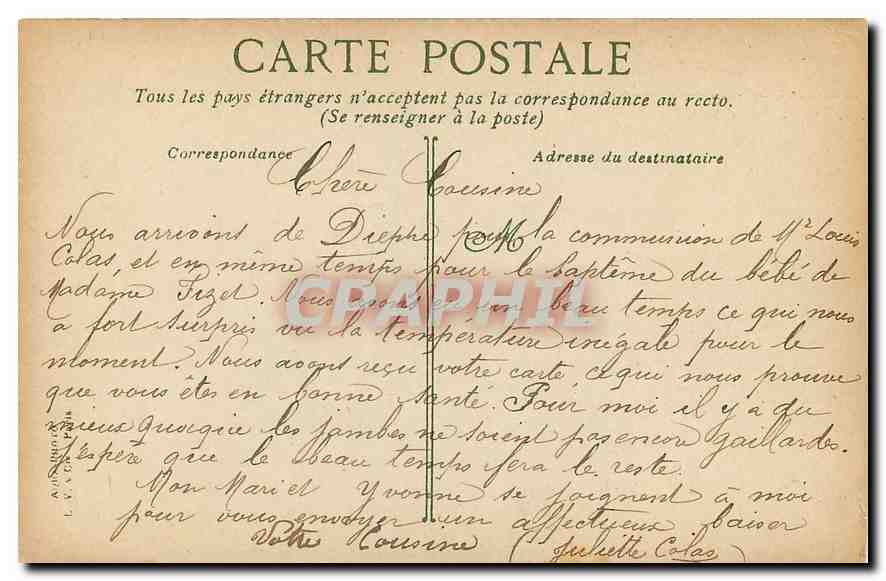 CARTE POSTALE
Tous les pays étrangers n'acceptent pas la correspondance au recto.
(Se renseigner à la poste)
Correspondance
Adresse du destinataire
Chère Cousine
M
Nous arrivons de Dieppe pour la communion de Mr Louis
Colas, et en même temps pour le baptême du bébé de
Madame Fizet. Nous avons eu un beau temps ce qui nous
a fort surpris vu la température inégale pour le
moment. Nous avons reçu votre carte ce qui nous prouve
que vous êtes en bonne santé. Pour moi il y a du
mieux quoique les jambes ne soient pas encore gaillardes.
J'espère que le beau temps fera le reste.
Mon Mari et Yvonne se joignent à moi
pour vous envoyer un affectueux baiser
Votre Cousine (Juliette Colas)
GRAPHIL